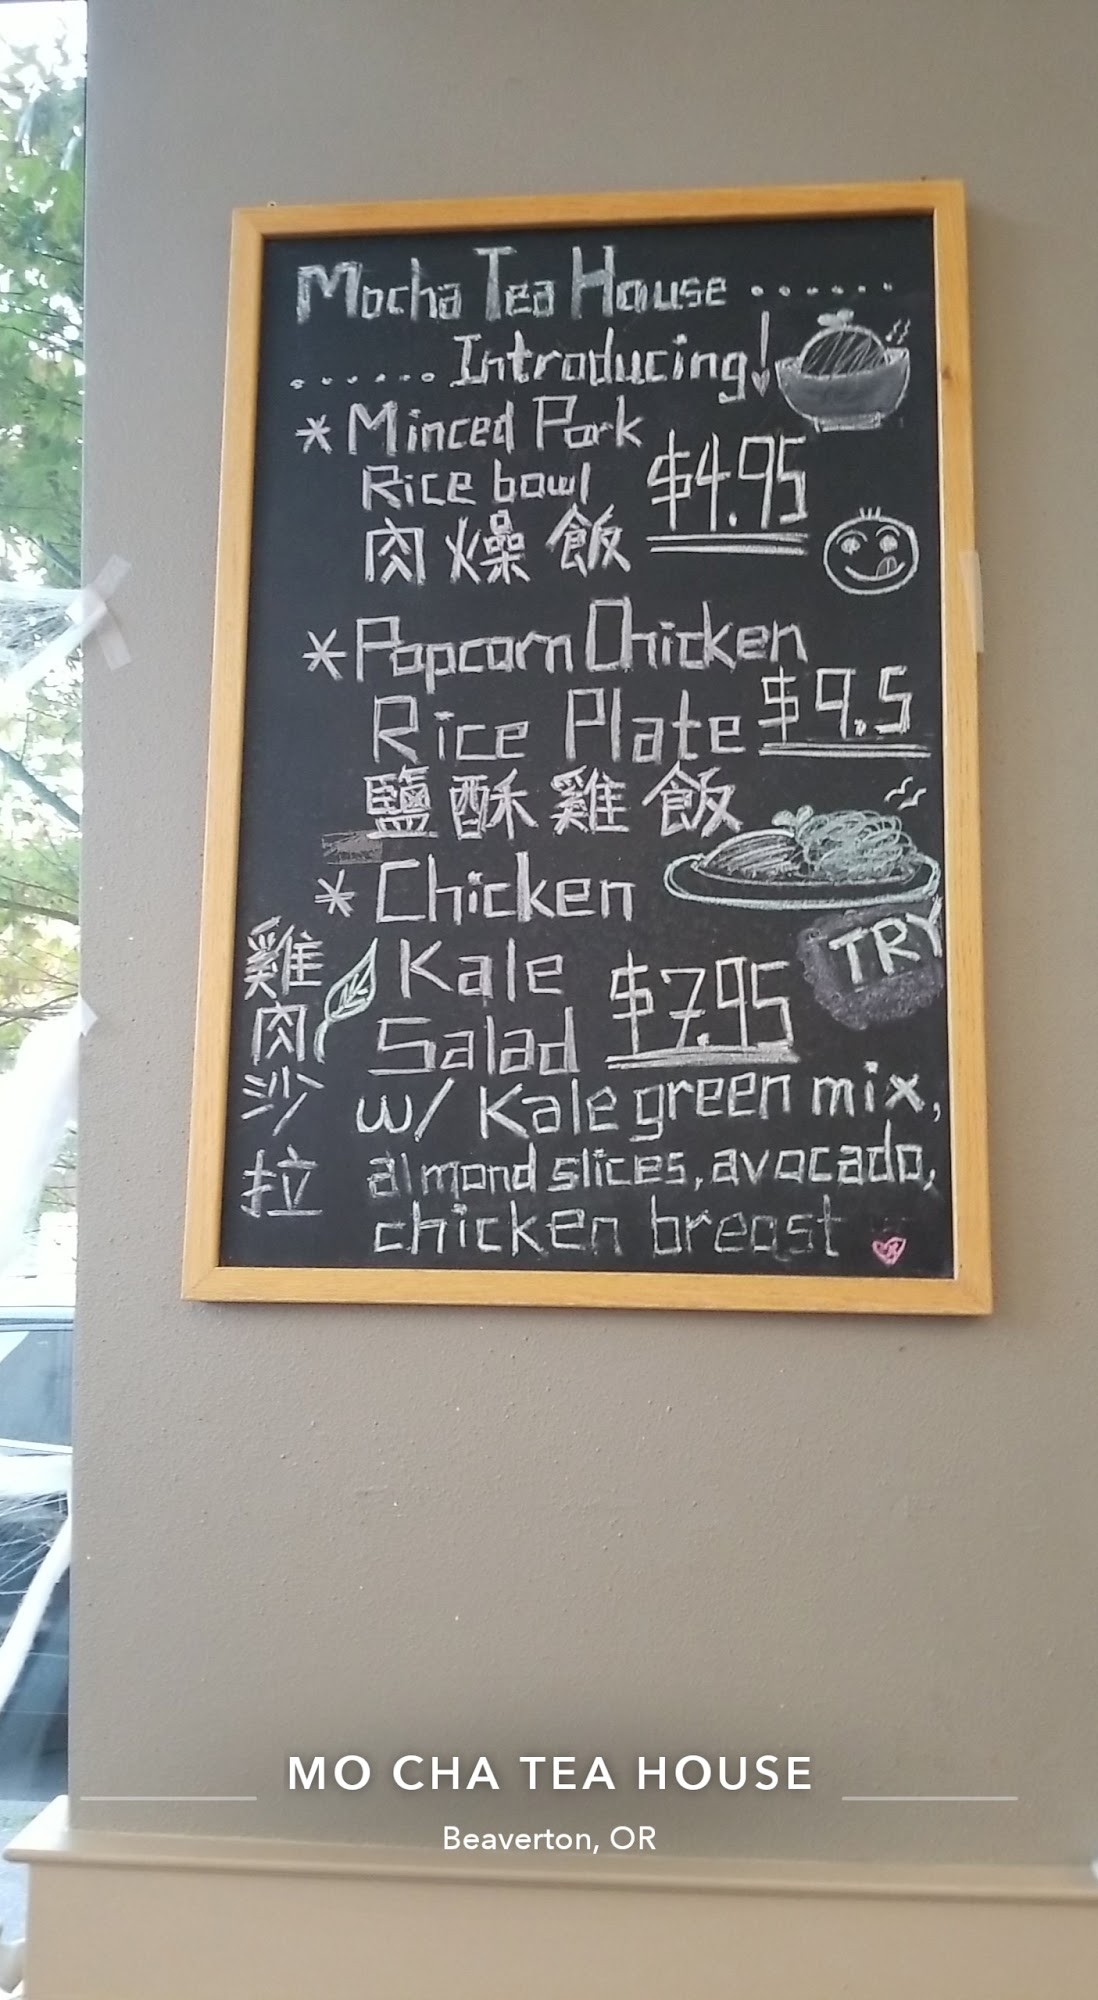 Mocha Tea House ......
...... Introducing!
* Minced Pork
Rice bowl $4.95
肉燥飯
* Popcorn Chicken
Rice Plate $9.5
鹽酥雞飯
* Chicken
Kale
Salad $7.95
TRY
雞肉沙拉
w/ Kale green mix,
almond slices, avocado,
chicken breast
MO CHA TEA HOUSE
Beaverton, OR